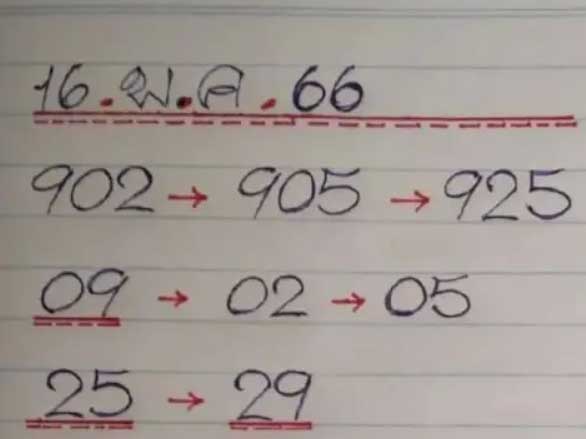 16.พ.ค.66
902→905→925
09→02→05
25→29